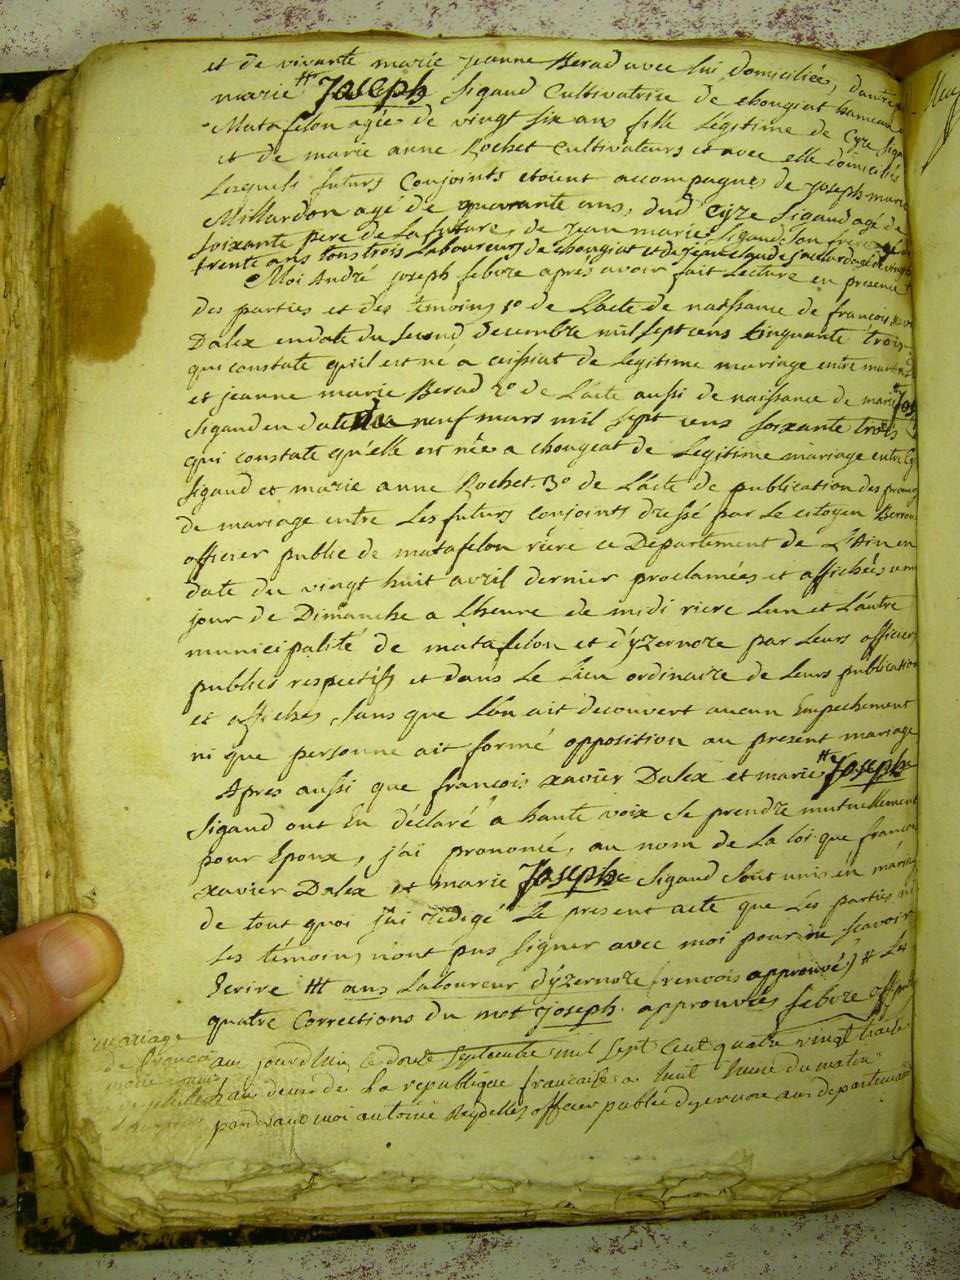 et de vivante marie jeanne Berad avec lui domiciliés, d'autre
marie Joseph Sigaud Cultivatrice de chougiat hameau
Matafelon agée de vingt six ans fille Légitime de Cyze Siga
et de marie anne Rochet Cultivateurs et avec elle domiciliés
Lesquels futurs Conjoints etoient accompagnés de joseph marie
Millardon agé de quarante ans, dud Cyze Sigaud agé de
soixante pere de La future, de jean marie Sigaud son frere agé de
trente ans tous trois Laboureurs de chougiat et de jean claude
Moi André joseph febvre apres avoir fait Lecture en presence
des parties et des temoins 1o de L'acte de naissance de francois
Dalex en date du second decembre mil sept cens Cinquante trois
qui constate qu'il est né a ceissiat de Legitime mariage entre
et jeanne marie Berad 2o de L'acte aussi de naissance de marie Jos
Sigaud en date du neuf mars mil sept cens soixante trois
qui constate qu'elle est née a chougeat de Legitime mariage entre Cy
Sigaud et marie anne Rochet. 3o de L'acte de publication des
de mariage entre Les futurs Conjoints dressé par Le citoyen
officier public de matafelon riere ce Département de L'Ain en
date du vingt huit avril dernier proclamées et affichées
jour de Dimanche a L'heure de midi riere Lun et L'autre
municipalité de matafelon et d'yzernore par Leurs officiers
publics respectifs et dans Le Lieu ordinaire de Leurs publication
et affiches, sans que L'on ait decouvert aucun Empechement
ni que personne ait formé opposition au present mariage
Apres aussi que francois xavier Dalex et marie Josephe
Sigaud ont Eu déclaré a haute voix se prendre mutuellement
pour Epoux, j'ai prononcé, au nom de La loi que francois
xavier Dalex et marie Josephe Sigaud sont unis en mariag
de tout quoi j'ai redigé Le present acte que Les parties ni
Les témoins n'ont pus signer avec moi pour ne scavoir
Ecrire ttt ans Laboureur d'yzernore (renvois approuvé) tt Les
quatre Corrections du mot joseph approuvées febvre off
mariage
de francoi
au jourd'hui Le douze septembre mil sept Cent quatre vingt treize
l'an deux de La republique francaise a huit heure du matin
par devant moi antoine Reydellet officier public dyzernore au departement